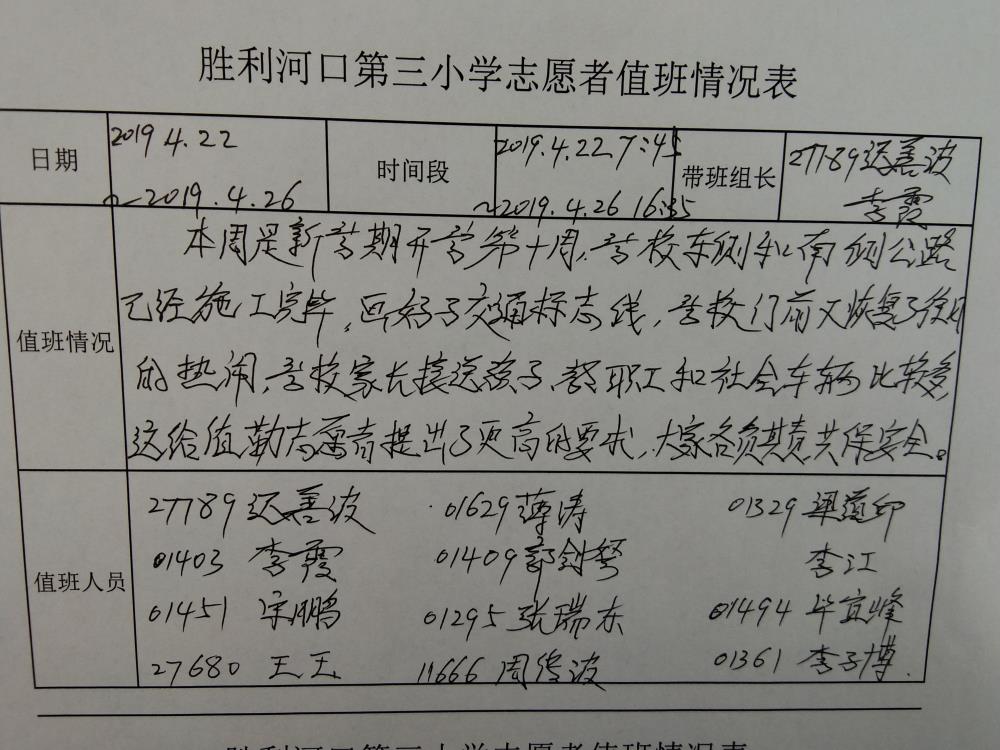 胜利河口第三小学志愿者值班情况表
日期 2019.4.22 ~2019.4.26 时间段 2019.4.22 7:45 ~2019.4.26 16:45 带班组长 27789迟善波 李霞
值班情况
本周是新学期开学第十周,学校东侧和南侧公路
已经施工完毕,画好了交通标志线,学校门前又恢复了往日
的热闹,学校家长接送孩子、教职工和社会车辆比较多,
这给值勤志愿者提出了更高的要求,大家各负其责共保安全。
值班人员
27789 迟善波 01629 薄涛 01329 梁益印
01403 李霞 01409 郭剑 李江
01451 宋鹏 01295 张瑞东 01494 毕宜峰
27680 王玉 11666 周俊波 01361 李子博
胜利河口第三小学志愿者值班情况表